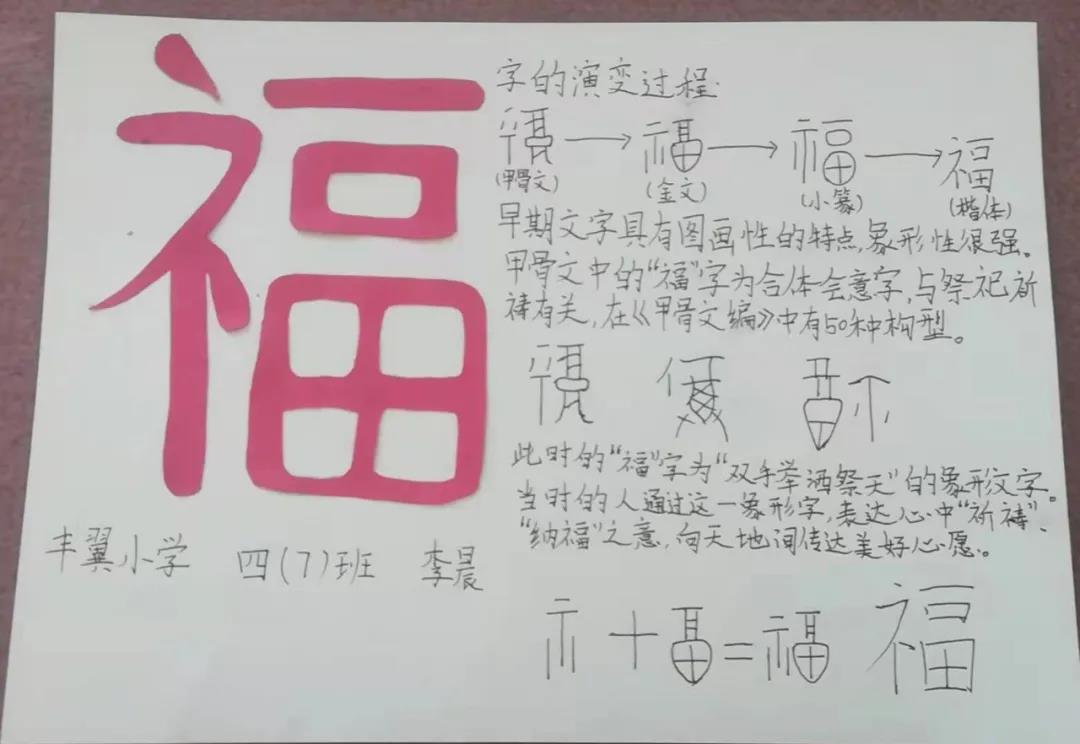 福
字的演变过程:
福→福→福→福
(甲骨文) (金文) (小篆) (楷体)
早期文字具有图画性的特点,象形性很强。
甲骨文中的“福”字为合体会意字,与祭祀祈
祷有关,在《甲骨文编》中有50种构型。
此时的“福”字为“双手举洒祭天”的象形汶字。
当时的人通过这一象形字,表达心中“祈祷”、
“纳福”之意,向天地间传达美好心愿。
丰翼小学 四(7)班 李晨
示+畐=福 福